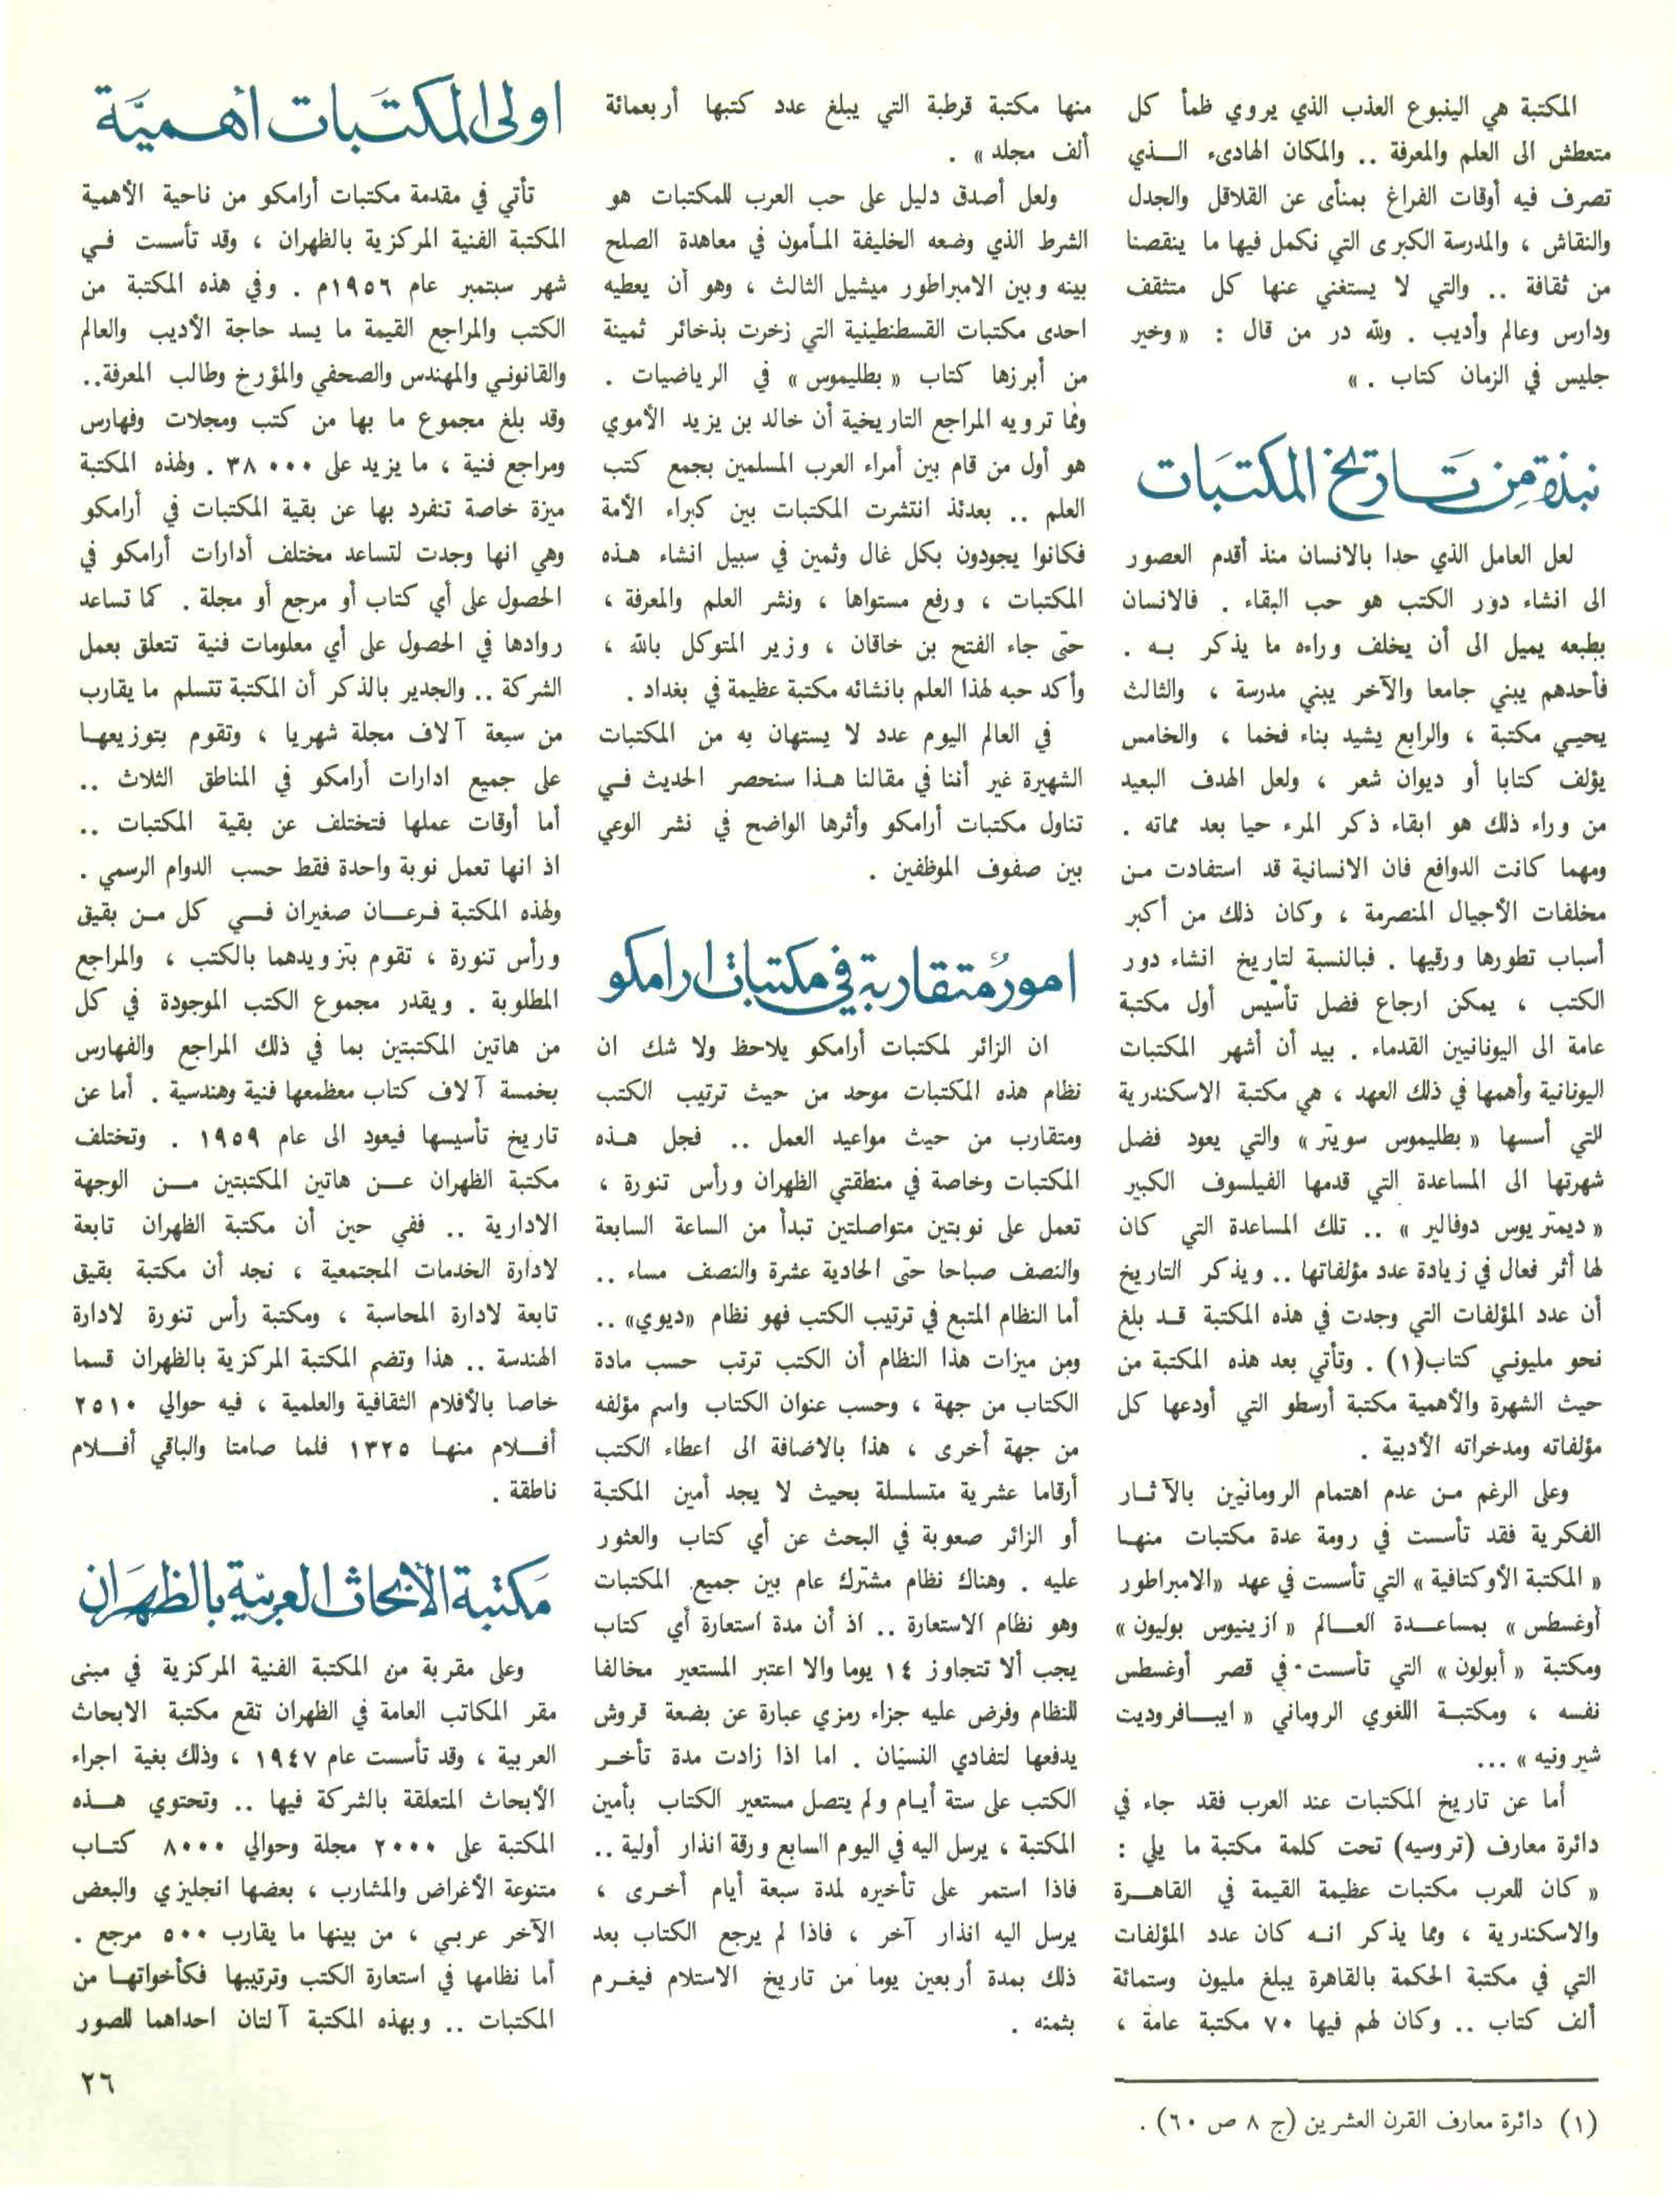 المكتبة هي الينبوع العذب الذي يروي ظمأ كل
متعطش الى العلم والمعرفة .. والمكان الهادىء الـذي
تصرف فيه أوقات الفراغ بمنأى عن القلاقل والجدل
والنقاش ، والمدرسة الكبرى التي نكمل فيها ما ينقصنا
من ثقافة .. والتي لا يستغني عنها كل متثقف
ودارس وعالم وأديب . ولله در من قال : « وخير
جليس في الزمان كتاب . »
نبذة من تاريخ المكتبات
لعل العامل الذي حدا بالانسان منذ أقدم العصور
الى انشاء دور الكتب هو حب البقاء . فالانسان
بطبعه يميل الى أن يخلف وراءه ما يذكر بـه .
فأحدهم يبني جامعا والآخر يبني مدرسة ، والثالث
يحيـي مكتبة ، والرابع يشيد بناء فخما ، والخامس
يؤلف كتابا أو ديوان شعر ، ولعل الهدف البعيد
من وراء ذلك هو ابقاء ذكر المرء حيا بعد مماته .
ومهما كانت الدوافع فان الانسانية قد استفادت مـن
مخلفات الأجيال المنصرمة ، وكان ذلك من أكبر
أسباب تطورها ورقيها . فبالنسبة لتاريخ انشاء دور
الكتب ، يمكن ارجاع فضل تأسيس أول مكتبة
عامة الى اليونانيين القدماء . بيد أن أشهر المكتبات
اليونانية وأهمها في ذلك العهد ، هي مكتبة الاسكندرية
التي أسسها « بطليموس سويتر » والتي يعود فضل
شهرتها الى المساعدة التي قدمها الفيلسوف الكبير
« ديمتريوس دوفالير » .. تلك المساعدة التي كان
لها أثر فعال في زيادة عدد مؤلفاتها .. ويذكر التاريخ
أن عدد المؤلفات التي وجدت في هذه المكتبة قـد بلغ
نحو مليونـي كتاب(١) . وتأتي بعد هذه المكتبة من
حيث الشهرة والأهمية مكتبة أرسطو التي أودعها كل
مؤلفاته ومدخراته الأدبية .
وعلى الرغم مـن عدم اهتمام الرومانيين بالآثـار
الفكرية فقد تأسست في رومة عدة مكتبات منهـا
« المكتبة الأوكتافية » التي تأسست في عهد «الامبراطور
أوغسطس » بمساعـدة العـالم « ازينيوس بوليون »
ومكتبة « أبولون » التي تأسست في قصر أوغسطس
نفسه ، ومكتبـة اللغوي الروماني « ايبـافروديت
شيرونيه » ...
أما عن تاريخ المكتبات عند العرب فقد جاء في
دائرة معارف (تروسيه) تحت كلمة مكتبة ما يلي :
« كان للعرب مكتبات عظيمة القيمة في القاهـرة
والاسكندرية ، ومما يذكر انـه كان عدد المؤلفات
التي في مكتبة الحكمة بالقاهرة يبلغ مليون وستمائة
ألف كتاب .. وكان لهم فيها ٧٠ مكتبة عامة ،
(١) دائرة معارف القرن العشرين (ج ٨ ص ٦٠) .
منها مكتبة قرطبة التي يبلغ عدد كتبها أربعمائة
ألف مجلد » .
ولعل أصدق دليل على حب العرب للمكتبات هو
الشرط الذي وضعه الخليفة المـأمون في معاهدة الصلح
بينه وبين الامبراطور ميشيل الثالث ، وهو أن يعطيه
احدى مكتبات القسطنطينية التي زخرت بذخائر ثمينة
من أبرزها كتاب « بطليموس » في الرياضيات .
ومما ترويه المراجع التاريخية أن خالد بن يزيد الأموي
هو أول من قام بين أمراء العرب المسلمين بجمع كتب
العلم .. بعدئذ انتشرت المكتبات بين كبراء الأمة
فكانوا يجودون بكل غال وثمين في سبيل انشاء هـذه
المكتبات ، ورفع مستواها ، ونشر العلم والمعرفة ،
حتى جاء الفتح بن خاقان ، وزير المتوكل بالله ،
وأكد حبه لهذا العلم بانشائه مكتبة عظيمة في بغداد .
في العالم اليوم عدد لا يستهان به من المكتبات
الشهيرة غير أننا في مقالنا هـذا سنحصر الحديث فـي
تناول مكتبات أرامكو وأثرها الواضح في نشر الوعي
بين صفوف الموظفين .
امور متقاربة في مكتبات ارامكو
ان الزائر لمكتبات أرامكو يلاحظ ولا شك ان
نظام هذه المكتبات موحد من حيث ترتيب الكتب
ومتقارب من حيث مواعيد العمل .. فجل هـذه
المكتبات وخاصة في منطقتي الظهران ورأس تنورة ،
تعمل على نوبتين متواصلتين تبدأ من الساعة السابعة
والنصف صباحا حتى الحادية عشرة والنصف مساء ..
أما النظام المتبع في ترتيب الكتب فهو نظام «ديوي» ..
ومن ميزات هذا النظام أن الكتب ترتب حسب مادة
الكتاب من جهة ، وحسب عنوان الكتاب واسم مؤلفه
من جهة أخرى ، هذا بالاضافة الى اعطاء الكتب
أرقاما عشرية متسلسلة بحيث لا يجد أمين المكتبة
أو الزائر صعوبة في البحث عن أي كتاب والعثور
عليه . وهناك نظام مشترك عام بين جميع المكتبات
وهو نظام الاستعارة .. اذ أن مدة استعارة أي كتاب
يجب ألا تتجاوز ١٤ يوما والا اعتبر المستعير مخالفا
للنظام وفرض عليه جزاء رمزي عبارة عن بضعة قروش
يدفعها لتفادي النسيان . اما اذا زادت مدة تأخـر
الكتب على ستة أيـام ولم يتصل مستعير الكتاب بأمين
المكتبة ، يرسل اليه في اليوم السابع ورقة انذار أولية ..
فاذا استمر على تأخيره لمدة سبعة أيام أخـرى ،
يرسل اليه انذار آخر ، فاذا لم يرجع الكتاب بعد
ذلك بمدة أربعين يوما من تاريخ الاستلام فيغـرم
بثمنه .
اولى المكتبات أهمية
تأتي في مقدمة مكتبات أرامكو من ناحية الأهمية
المكتبة الفنية المركزية بالظهران ، وقد تأسست فـي
شهر سبتمبر عام ١٩٥٦م . وفي هذه المكتبة من
الكتب والمراجع القيمة ما يسد حاجة الأديب والعالم
والقانونـي والمهندس والصحفي والمؤرخ وطالب المعرفة..
وقد بلغ مجموع ما بها من كتب ومجلات وفهارس
ومراجع فنية ، ما يزيد على ٣٨٠٠٠ . ولهذه المكتبة
ميزة خاصة تنفرد بها عن بقية المكتبات في أرامكو
وهي انها وجدت لتساعد مختلف أدارات أرامكو في
الحصول على أي كتاب أو مرجع أو مجلة . كما تساعد
روادها في الحصول على أي معلومات فنية تتعلق بعمل
الشركة .. والجدير بالذكر أن المكتبة تتسلم ما يقارب
من سبعة آلاف مجلة شهريا ، وتقوم بتوزيعهـا
على جميع ادارات أرامكو في المناطق الثلاث ..
أما أوقات عملها فتختلف عن بقية المكتبات ..
اذ انها تعمل نوبة واحدة فقط حسب الدوام الرسمي .
ولهذه المكتبة فـرعـان صغيران فـي كل مـن بقيق
ورأس تنورة ، تقوم بتزويدهما بالكتب ، والمراجع
المطلوبة . ويقدر مجموع الكتب الموجودة في كل
من هاتين المكتبتين بما في ذلك المراجع والفهارس
بخمسة آلاف كتاب معظمعها فنية وهندسية . أما عن
تاريخ تأسيسها فيعود الى عام ١٩٥٩ . وتختلف
مكتبة الظهران عـن هاتين المكتبتين مـن الوجهة
الادارية .. ففي حين أن مكتبة الظهران تابعة
لادارة الخدمات المجتمعية ، نجد أن مكتبة بقيق
تابعة لادارة المحاسبة ، ومكتبة رأس تنورة لادارة
الهندسة .. هذا وتضم المكتبة المركزية بالظهران قسما
خاصا بالأفلام الثقافية والعلمية ، فيه حوالي ٢٥١٠
أفـلام منهـا ١٣٢٥ فلما صامتا والباقي أفـلام
ناطقة .
مكتبة الأبحاث العربية بالظهران
وعلى مقربة من المكتبة الفنية المركزية في مبنى
مقر المكاتب العامة في الظهران تقع مكتبة الابحاث
العربية ، وقد تأسست عام ١٩٤٧ ، وذلك بغية اجراء
الأبحاث المتعلقة بالشركة فيها .. وتحتوي هـذه
المكتبة على ٢٠٠٠ مجلة وحوالي ٨٠٠٠ كتـاب
متنوعة الأغراض والمشارب ، بعضها انجليزي والبعض
الآخر عربـي ، من بينها ما يقارب ٥٠٠ مرجع .
أما نظامها في استعارة الكتب وترتيبها فكأخواتهـا من
المكتبات .. وبهذه المكتبة آلتان احداهما للصور
٢٦